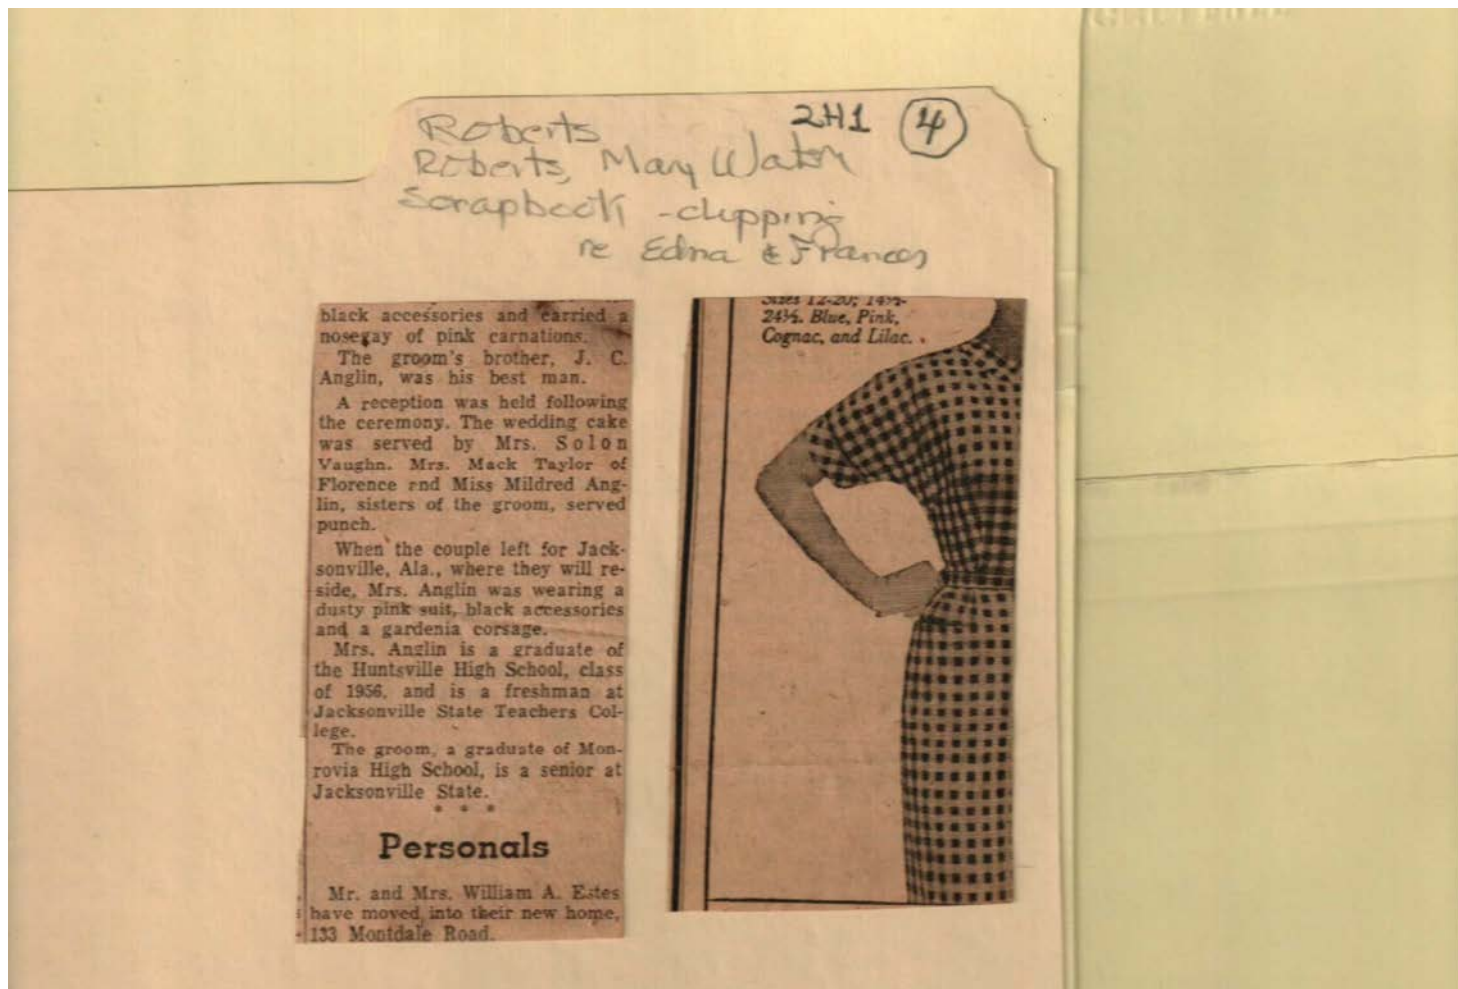 2H1 4
Roberts
Roberts, Mary Watson
Scrapbook - clipping
re Edna & Frances
black accessories and carried a
nosegay of pink carnations.
The groom's brother, J. C.
Anglin, was his best man.
A reception was held following
the ceremony. The wedding cake
was served by Mrs. Solon
Vaughn. Mrs. Mack Taylor of
Florence rnd Miss Mildred Ang-
lin, sisters of the groom, served
punch.
When the couple left for Jack-
sonville, Ala., where they will re-
side, Mrs. Anglin was wearing a
dusty pink suit, black accessories
and a gardenia corsage.
Mrs. Anglin is a graduate of
the Huntsville High School, class
of 1956, and is a freshman at
Jacksonville State Teachers Col-
lege.
The groom, a graduate of Mon-
rovia High School, is a senior at
Jacksonville State.
* * *
Personals
Mr. and Mrs. William A. Estes
have moved into their new home,
133 Montdale Road.
Sizes 12-20; 14½-
24½. Blue, Pink,
Cognac, and Lilac.